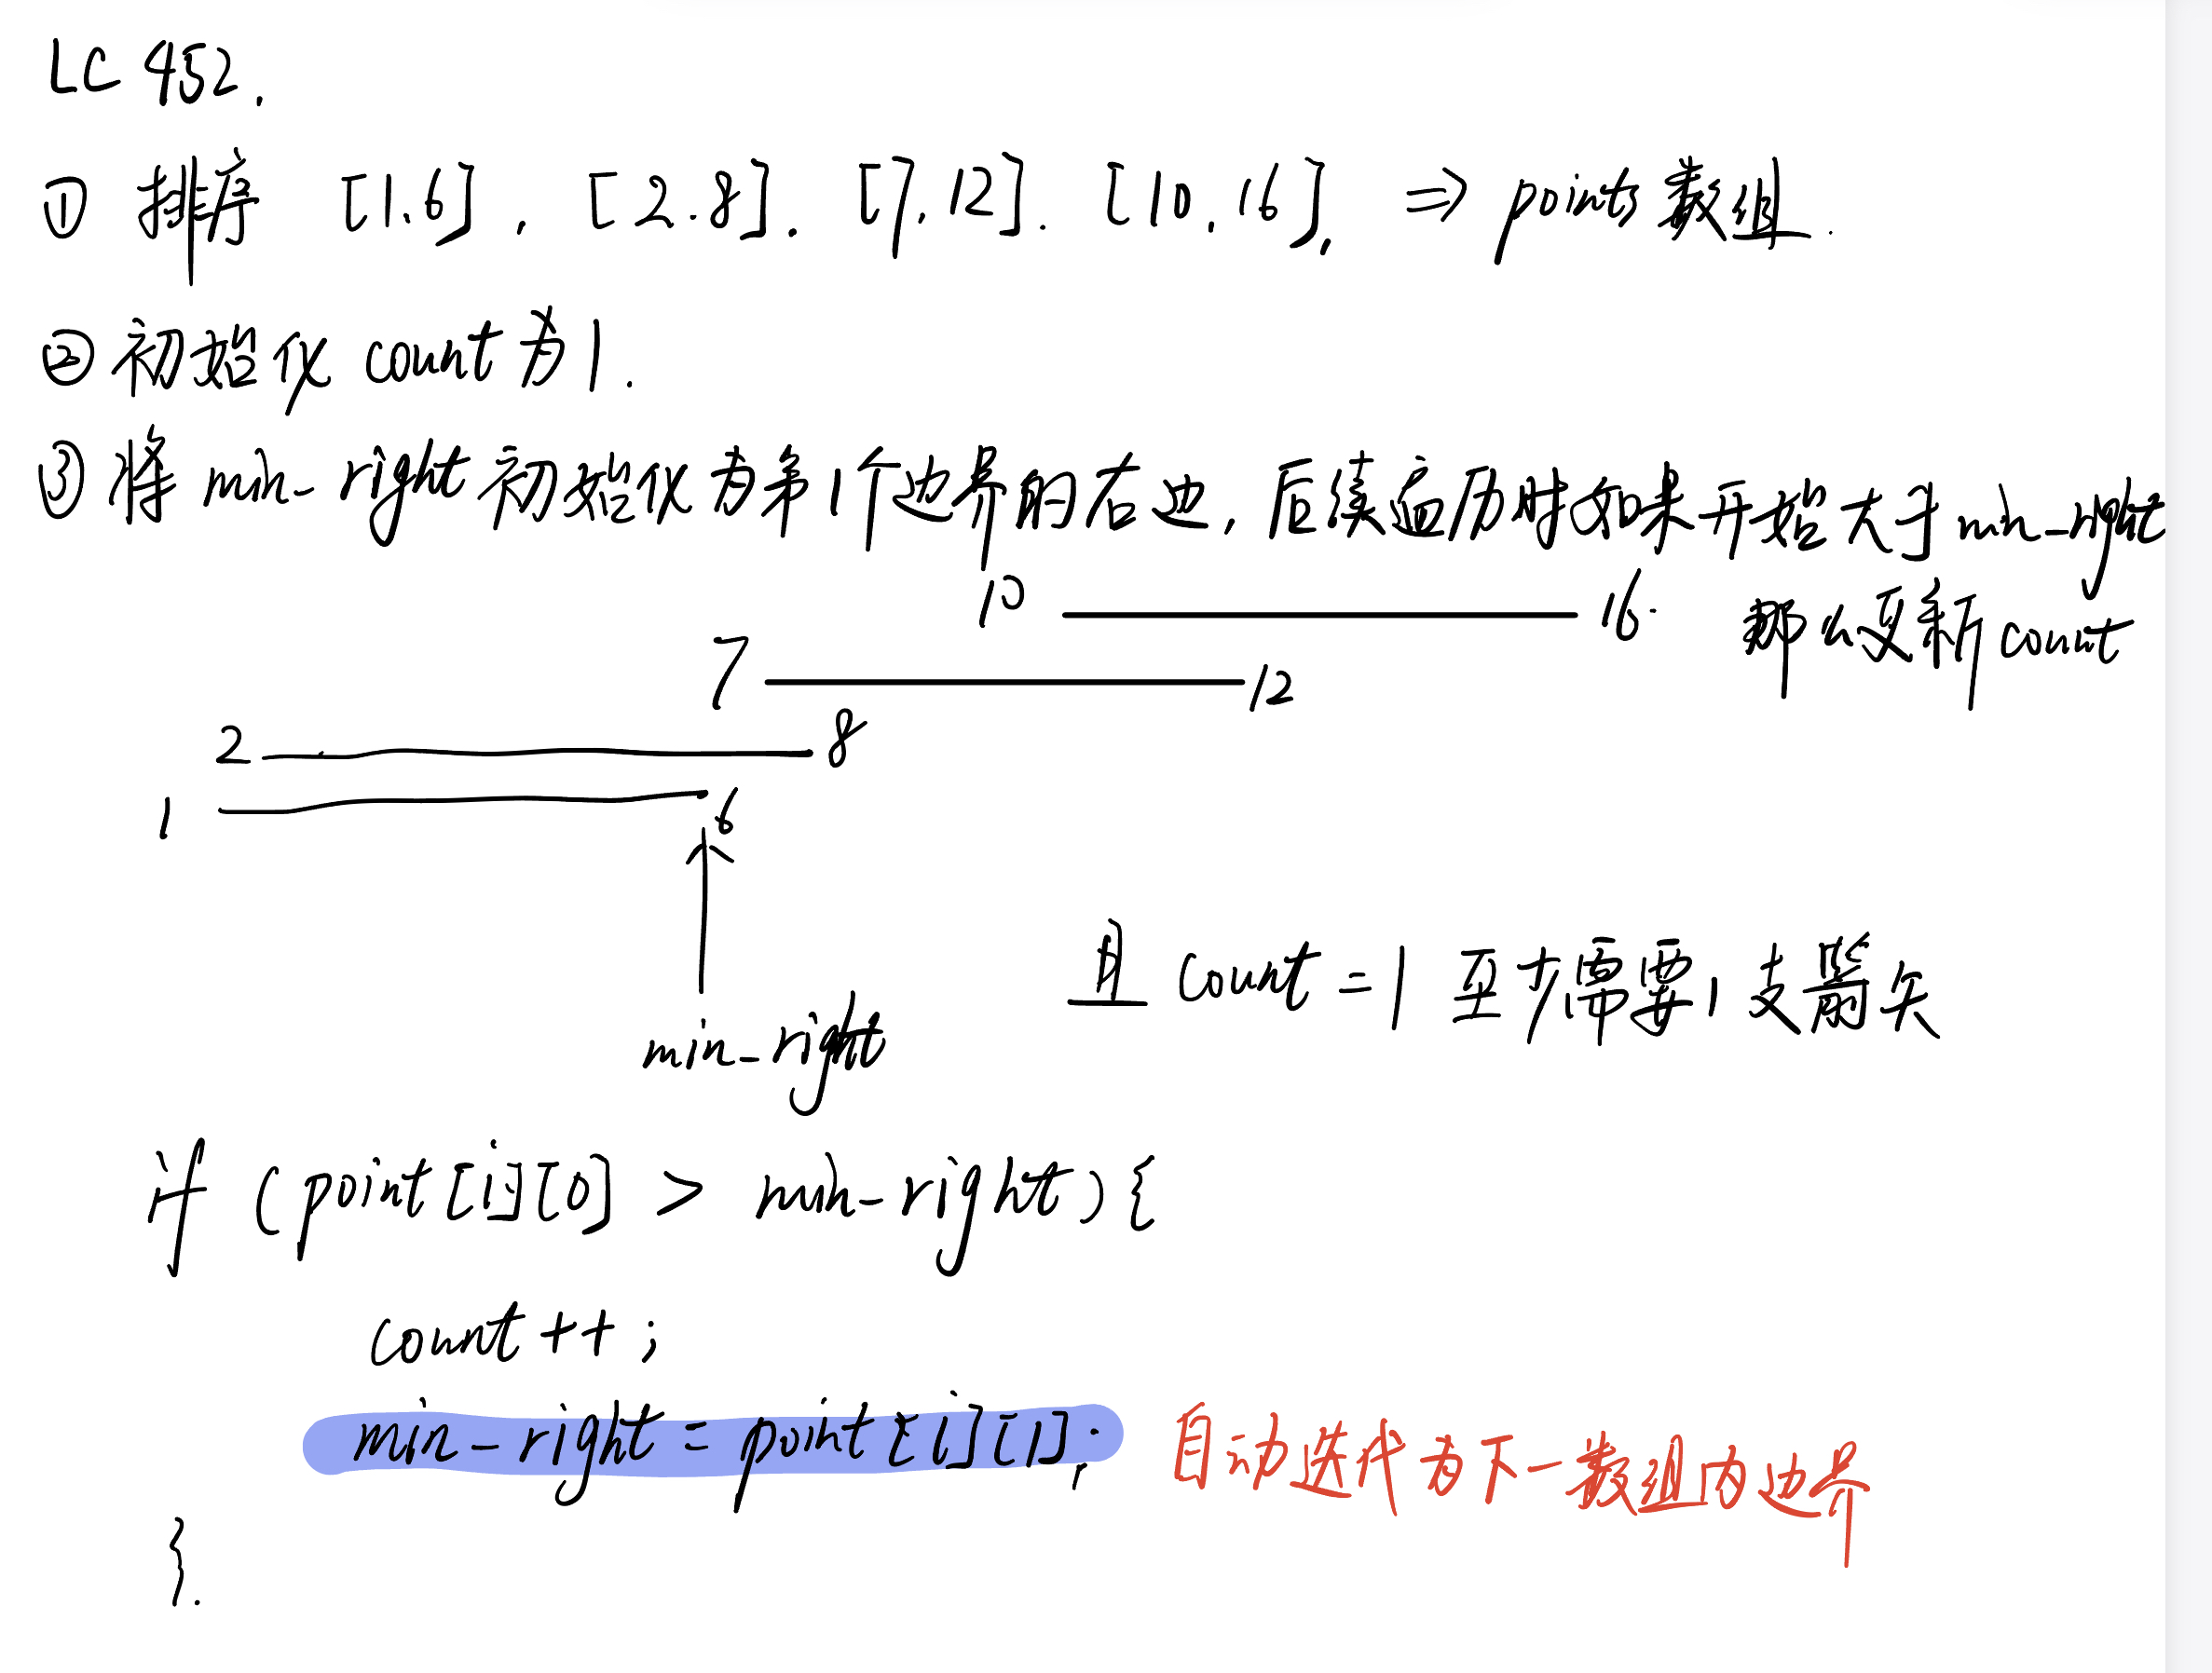 LC 452.
① 排序 [1.6], [2.8]. [7.12]. [10.16]. ⇒ points 数组.
② 初始化 count 为 1.
③ 将 min-right 初始化为第1个边界的右边, 后续遍历时如果开始大于 min-right
那么更新 count
10 16.
7 12
2 8
1 6
min-right
且 count = 1 至少需要1支箭矢
if (point[i][0] > min-right){
count ++;
min-right = point[i][1]; 自动迭代为下一数组内边界
}.